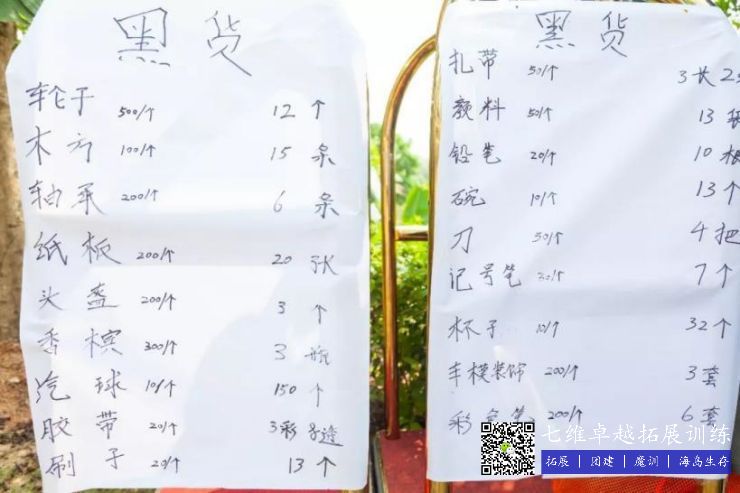 黑货
轮子 500/个 12 个
木方 100/个 15 条
轴承 200/个 6 条
纸板 200/个 20 张
头盔 200/个 3 个
香槟 300/个 3 瓶
汽球 10/个 150 个
胶带 20/个 3彩
刷子 20/个 13个
黑货
扎带 50/个 3长2
颜料 50/个 13
铅笔 20/个 10根
碗 10/个 13个
刀 50/个 4把
记号笔 20/个 7个
杯子 10/个 32个
车模装饰 200/个 3套
彩笔 200/个 6套
七维卓越拓展训练
拓展 | 团建 | 魔训 | 海岛生存